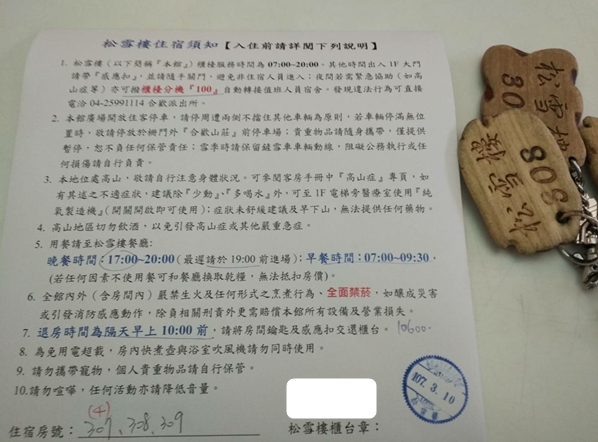 松雪樓住宿須知【入住前請詳閱下列說明】
1. 松雪樓（以下簡稱『本館』）櫃檯服務時間為 07:00~20:00。其他時間出入 1F 大門
請帶『感應扣』，並請隨手關門，避免非住宿人員進入；夜間若需緊急協助（如高
山症等）亦可撥櫃檯分機『100』自動轉接值班人員宿舍。發現違法行為可直接
電洽 04-25991114 合歡派出所。
2. 本館廣場開放住客停車，請停周邊兩側不擋住其他車輛為原則，若車輛停滿無位
置時，敬請停放於柵門外『合歡山莊』前停車場；貴重物品請隨身攜帶，僅提供
暫停，恕不負任何保管責任；雪季時請保留鏟雪車車輛動線，阻礙公務執行或任
何損傷請自行負責。
3. 本地位處高山，敬請自行注意身體狀況。可參閱客房手冊中『高山症』專頁，如
有其述之不適症狀，建議除『少動』、『多喝水』外，可至 1F 電梯旁醫療室使用『純
氧製造機』（開關開啟即可使用）；症狀未舒緩建議及早下山，無法提供任何藥物。
4. 高山地區切勿飲酒，以免引發高山症或其他嚴重急症。
5. 用餐請至松雪樓餐廳：
晚餐時間：17:00~20:00（最遲請於 19:00 前進場）；早餐時間：07:00~09:30。
（若任何因素不使用餐可和餐廳換取乾糧，無法抵扣房價）。
6. 全館內外（含房間內）嚴禁生火及任何形式之烹煮行為、全面禁菸，如釀成災害
或引發消防感應動作，除負相關刑責外更需賠償本館所有設備及營業損失。
7. 退房時間為隔天早上 10:00 前，請將房間鑰匙及感應扣交還櫃台。 10600.
8. 為免用電超載，房內快煮壺與浴室吹風機請勿同時使用。
9. 請勿攜帶寵物，個人貴重物品請自行保管。
10.請勿喧嘩，任何活動亦請降低音量。
(4)
住宿房號： 307、308、309
松雪樓櫃台章：
107. 3. 10
松雪樓
80
松雪樓
808